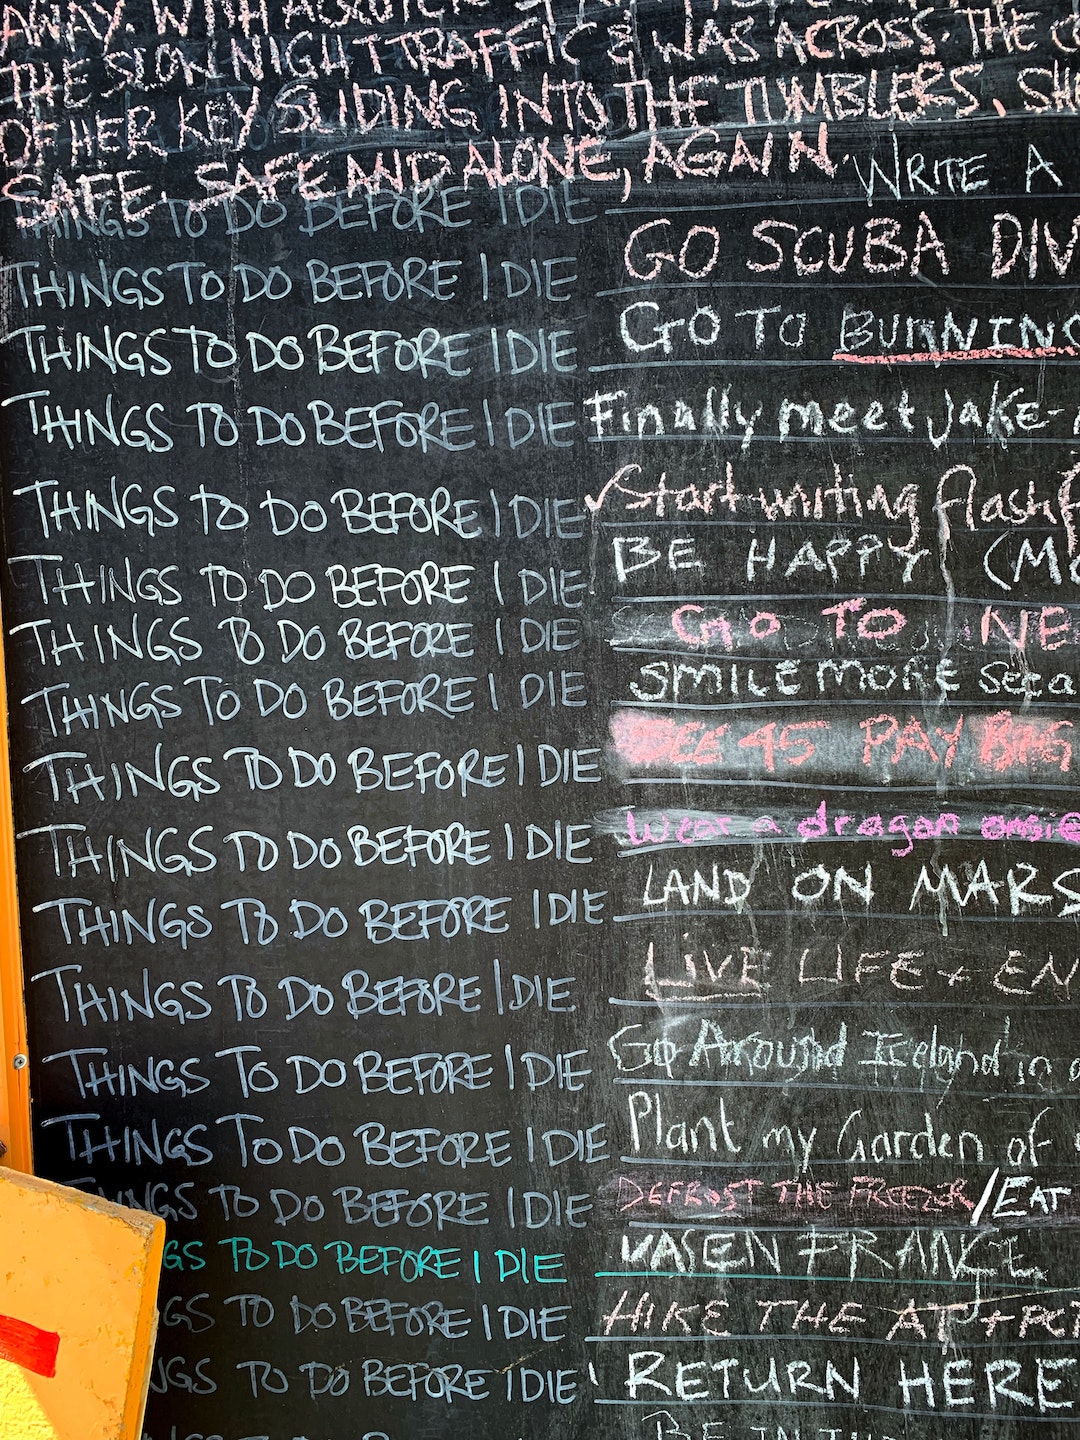 AWAY. WITH
THE SLOW NIGHT TRAFFIC & WAS ACROSS. THE
OF HER KEY SLIDING INTO THE TUMBLERS.
SAFE. SAFE AND ALONE, AGAIN.
THINGS TO DO BEFORE I DIE WRITE A
THINGS TO DO BEFORE I DIE GO SCUBA DIV
THINGS TO DO BEFORE I DIE GO TO BURNING
THINGS TO DO BEFORE I DIE Finally meet Jake-
THINGS TO DO BEFORE I DIE Start writing flash f
THINGS TO DO BEFORE I DIE BE HAPPY (MO
THINGS TO DO BEFORE I DIE GO TO NE
THINGS TO DO BEFORE I DIE SMILE MORE
THINGS TO DO BEFORE I DIE SEE 45 PAY
THINGS TO DO BEFORE I DIE Wear a dragon onsie
THINGS TO DO BEFORE I DIE LAND ON MARS
THINGS TO DO BEFORE I DIE LIVE LIFE + EN
THINGS TO DO BEFORE I DIE Go Around Iceland in a
THINGS TO DO BEFORE I DIE Plant my Garden of
THINGS TO DO BEFORE I DIE DEFROST THE FREEZER / EAT
GS TO DO BEFORE I DIE FRANCE
GS TO DO BEFORE I DIE HIKE THE AT +
NGS TO DO BEFORE I DIE RETURN HERE
BE IN THE